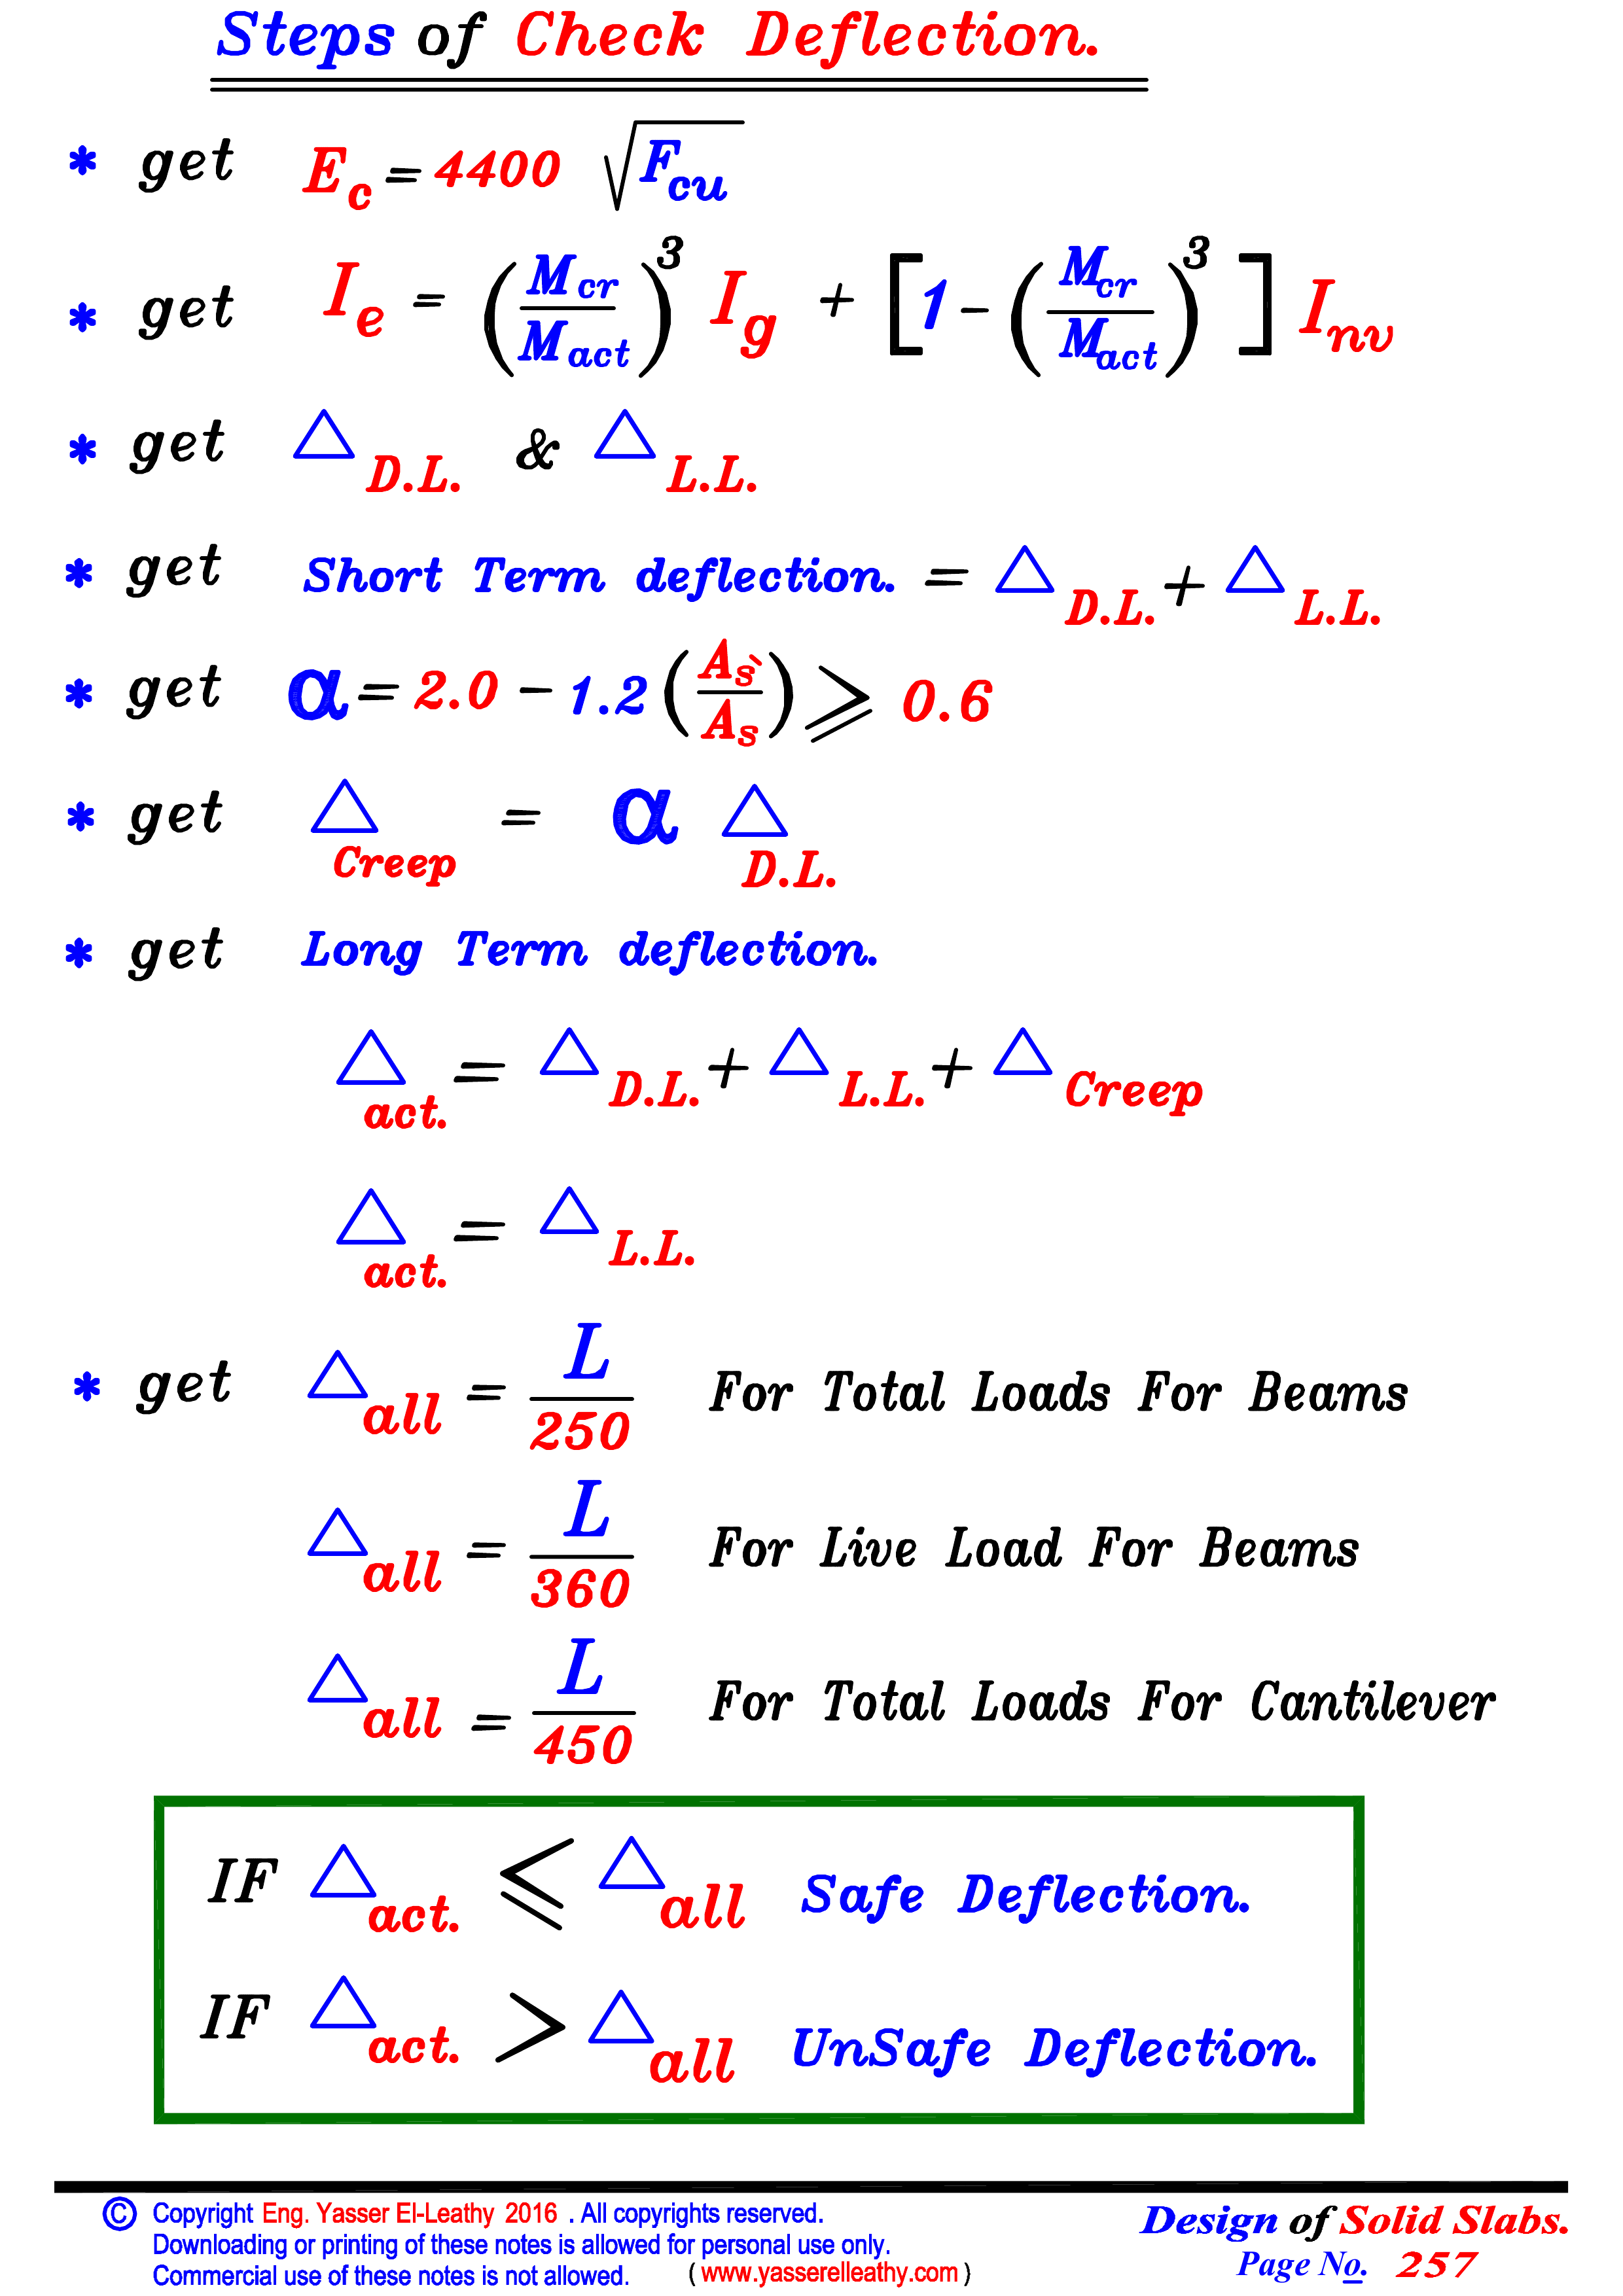 Steps of Check Deflection.
* get E_c = 4400 √F_cu
* get I_e = (M_cr / M_act)^3 I_g + [1 - (M_cr / M_act)^3] I_nv
* get △_D.L. & △_L.L.
* get Short Term deflection. = △_D.L. + △_L.L.
* get α = 2.0 - 1.2 (A_s` / A_s) ⩾ 0.6
* get △_Creep = α △_D.L.
* get Long Term deflection.
△_act. = △_D.L. + △_L.L. + △_Creep
△_act. = △_L.L.
* get △_all = L / 250 For Total Loads For Beams
△_all = L / 360 For Live Load For Beams
△_all = L / 450 For Total Loads For Cantilever
IF △_act. ⩽ △_all Safe Deflection.
IF △_act. > △_all UnSafe Deflection.
© Copyright Eng. Yasser El-Leathy 2016 . All copyrights reserved.
Downloading or printing of these notes is allowed for personal use only.
Commercial use of these notes is not allowed. ( www.yasserelleathy.com )
Design of Solid Slabs.
Page No. 257